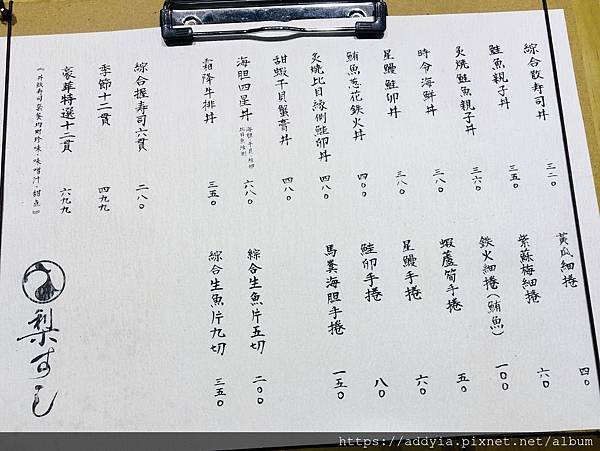 綜合散寿司丼 三二〇
鮭魚親子丼 三五〇
炙燒鮭魚親子丼 三六〇
時令海鮮丼 三八〇
星鰻鮭卵丼 三八〇
鮪魚葱花鉄火丼 四〇〇
炙燒比目緣側鮭卵丼 四八〇
甜蝦干貝蟹膏丼 四八〇
海胆四星丼 六八〇
霜降牛排丼 三五〇
綜合握寿司六貫 二八〇
季節十二貫 四九九
豪華特選十二貫 六九九
黃瓜細捲 四〇
紫蘇梅細捲 六〇
鉄火細捲(鮪魚) 一〇〇
蝦蘆筍手捲 五〇
星鰻手捲 六〇
鮭卵手捲 八〇
馬糞海胆手捲 一五〇
綜合生魚片五切 二〇〇
綜合生魚片九切 三五〇
梨すし
https://addyia.pixnet.net/album